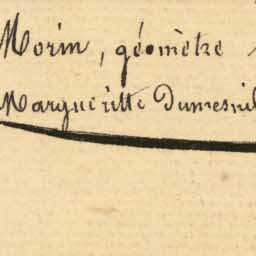 Morin, géomètre
Marguerite Dumesnil